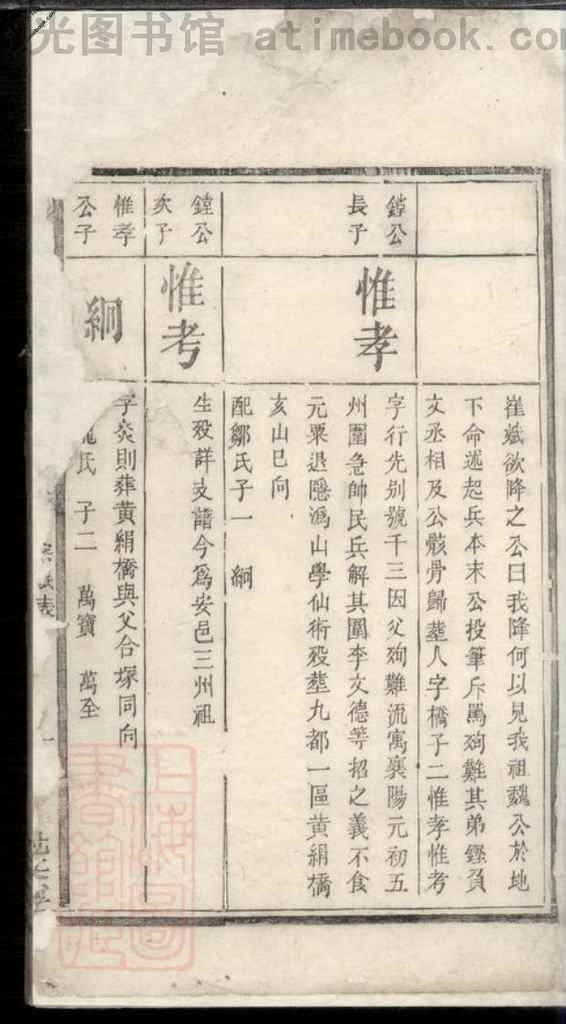 光图书馆 atimebook.com
崔斌欲降之公曰我降何以見我祖魏公於地
下命述起兵本末公投筆斥罵殉難其弟鏗負
文丞相及公骸骨歸塟人字橋子二惟孝惟考
鏜公
長子
惟孝
字行先别號千三因父殉難流寓襄陽元初五
州圍急帥民兵解其圍李文德等招之義不食
元粟退隱溈山學仙術殁塟九都一區黄絹橋
亥山巳向
配鄒氏子一 絅
鏜公
次子
惟考
生殁詳支譜今爲安邑三州祖
惟孝
公子
絅
字炎則葬黄絹橋與父合塚同向
氏 子二 萬寶 萬全